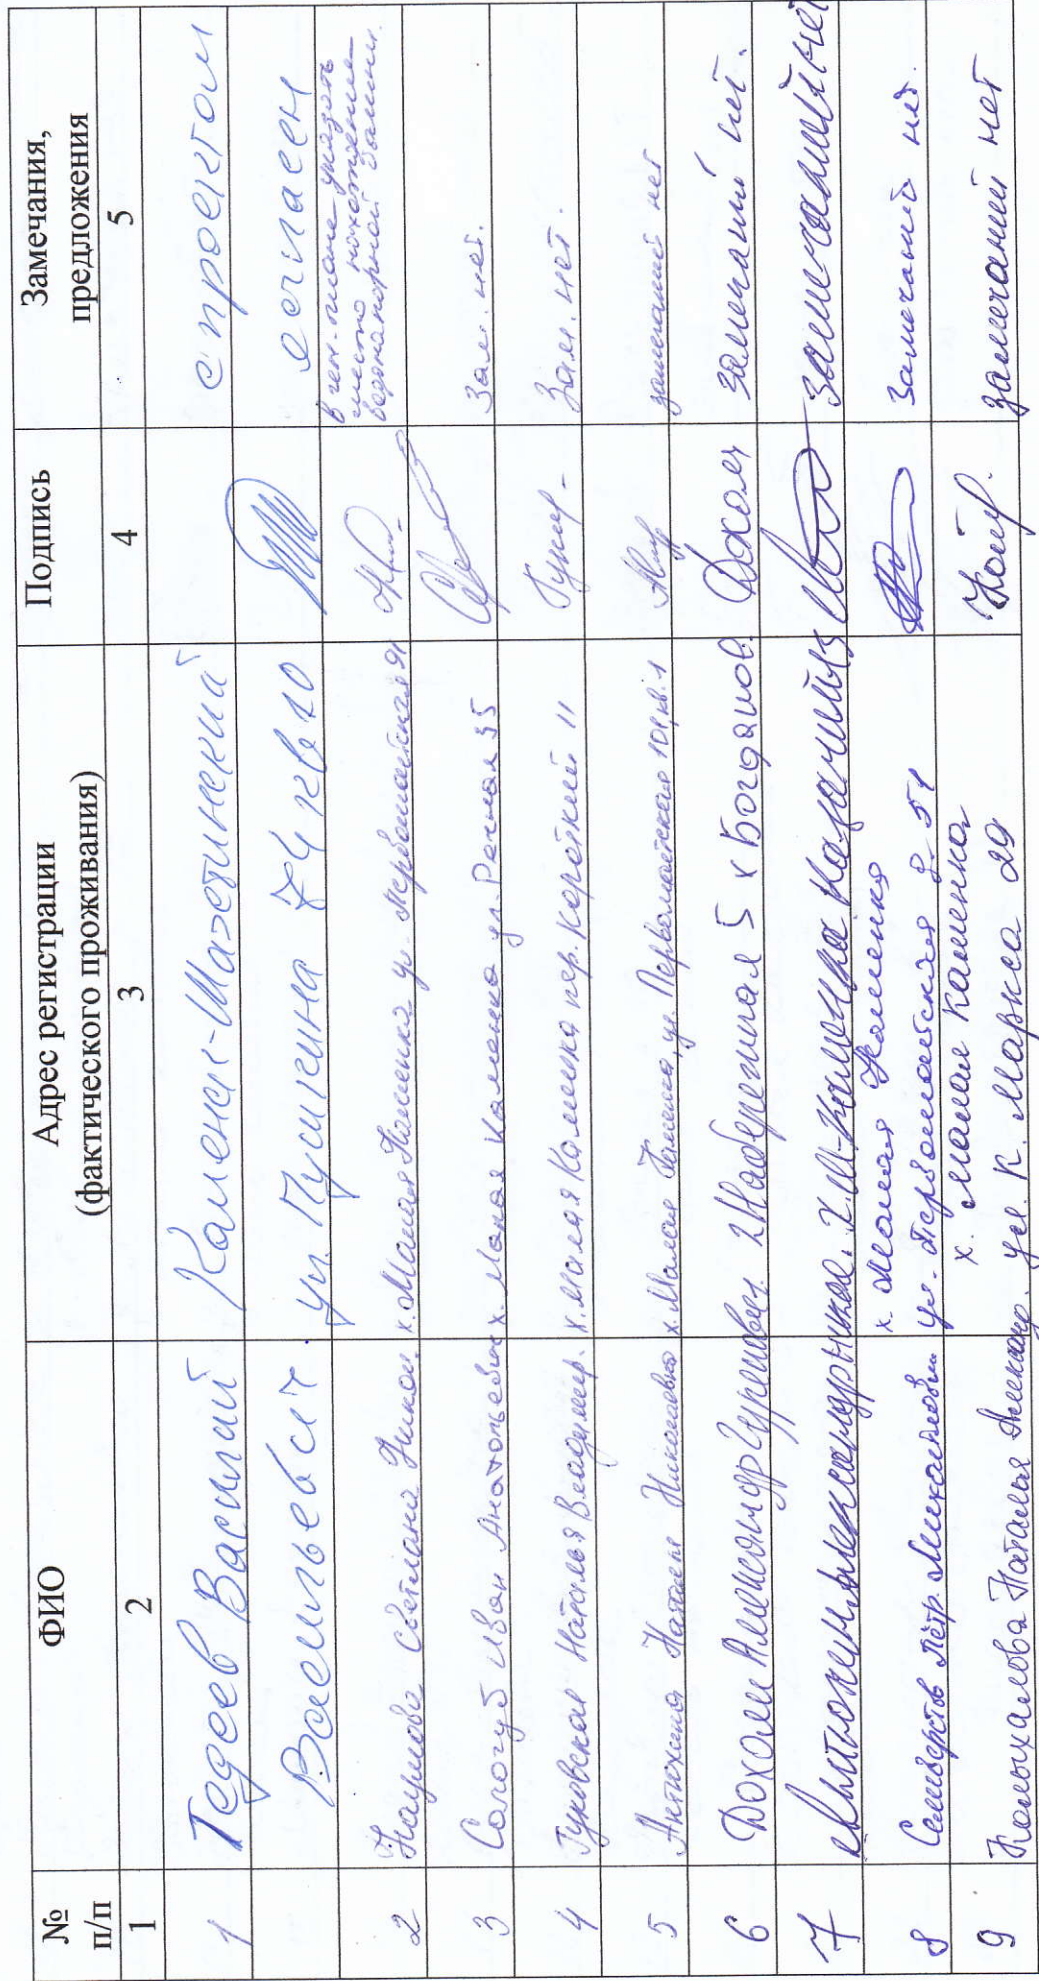 № п/п ФИО Адрес регистрации (фактического проживания) Подпись Замечания, предложения
1 2 3 4 5
1 Тедеев Василий Каменск-Шахтинский с проектом
Васильевич ул. Пушкина 74 кв 10 согласен
2 Наумова Светлана Никол. х. Малая Каменка ул. Первомайская 91 в ген. плане указать место нахождение водонапорной башни.
3 Сологуб Иван Анатольевич х. Малая Каменка ул. Речная 35 Зам. нет.
4 Гуковская Наталья Владимир. х. Малая Каменка пер. Короткий 11 Зам. нет.
5 Антюхина Наталья Николаевна х. Малая Каменка, ул. Первомайская 101, кв. 1 замечаний нет
6 Александр 2 Набережная 5 х Богданов замечаний нет.
7 х. М-Каменка замечаний нет
8 Селиверстов Пётр Михайлович х. Малая Каменка ул. Первомайская д. 51 Замечаний нет.
9 Колыхалова Наталья х. Малая Каменка ул. К. Маркса 29 замечаний нет